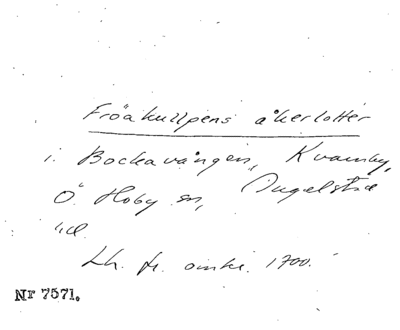 Fröakullpens åkerlotter
i Bockavången, Kvarnby,
Ö. Hoby sn, Ingelstad
hd.
Lh. fr. omkr. 1700.
Nr 7571.